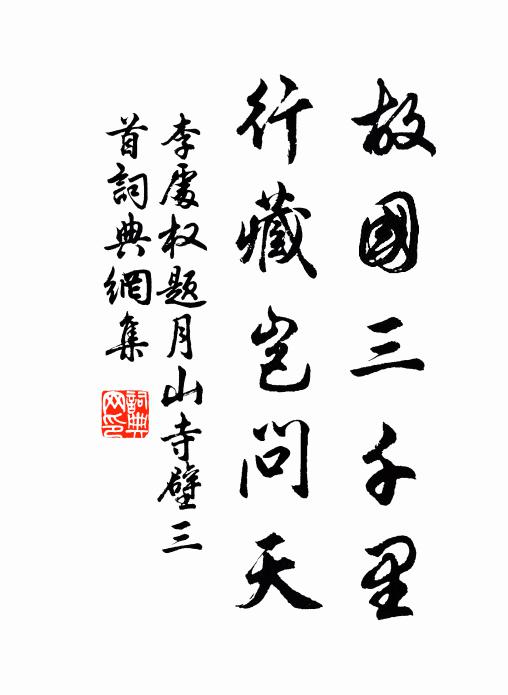 故國三千里
行藏豈問天
李處权题月山寺壁三
首詞典網集
詞典
网印